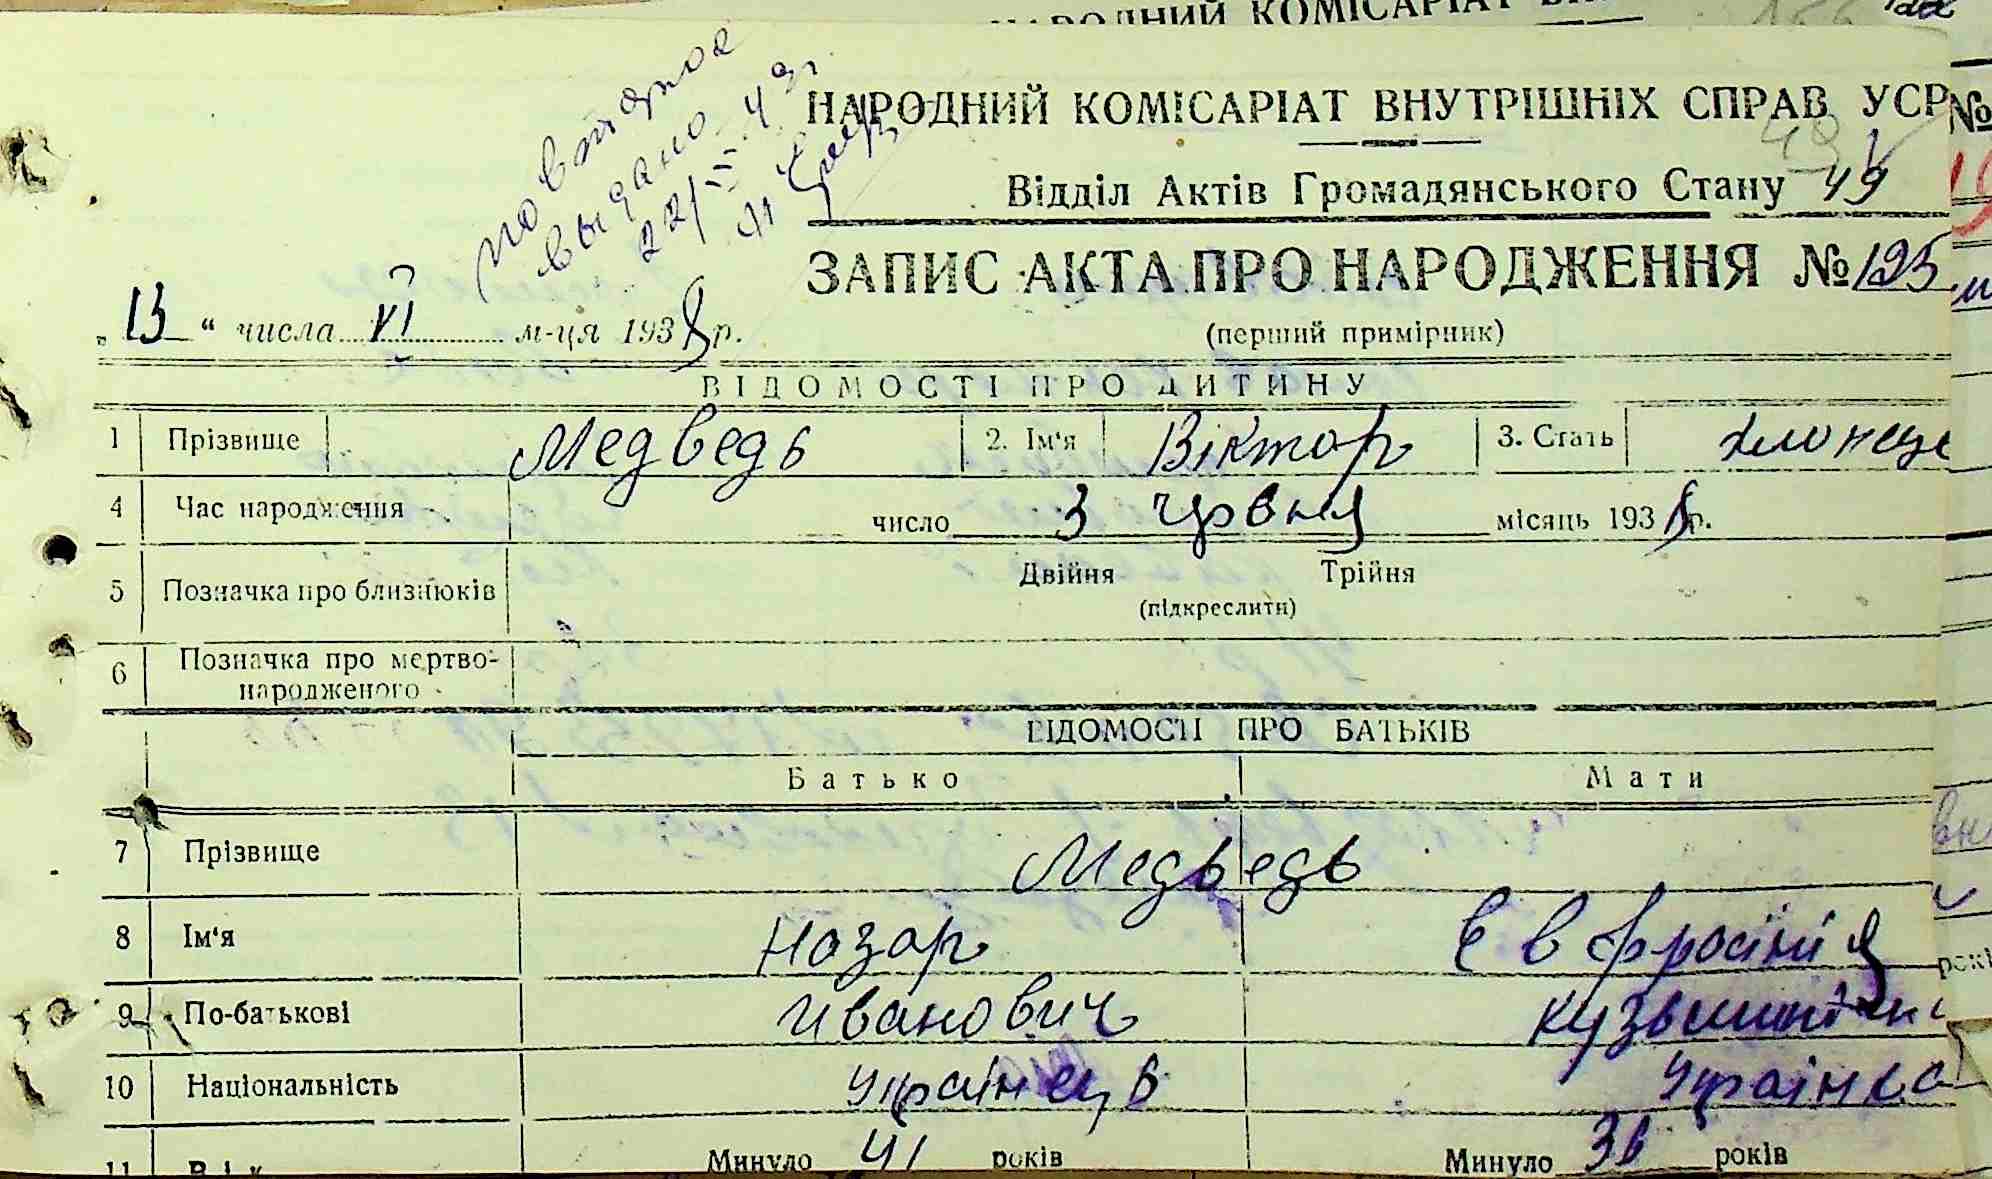 НАРОДНИЙ КОМІСАРІАТ
повторное
выдано
22/
НАРОДНИЙ КОМІСАРІАТ ВНУТРІШНІХ СПРАВ УСР
№
Відділ Актів Громадянського Стану 49
ЗАПИС АКТА ПРО НАРОДЖЕННЯ № 195
(перший примірник)
„13“ числа VI м-ця 1938 р.
ВІДОМОСТІ ПРО ДИТИНУ
1 Прізвище Медведь 2. Ім'я Віктор 3. Стать хлопець
4 Час народження число 3 червня місяць 1938 р.
5 Позначка про близнюків Двійня Трійня
(підкреслити)
6 Позначка про мертво-
народженого
ВІДОМОСТІ ПРО БАТЬКІВ
Батько Мати
7 Прізвище Медведь
8 Ім'я Назар Євфросінія
9 По-батькові Иванович
10 Національність українець українка
11 Вік Минуло 41 років Минуло років